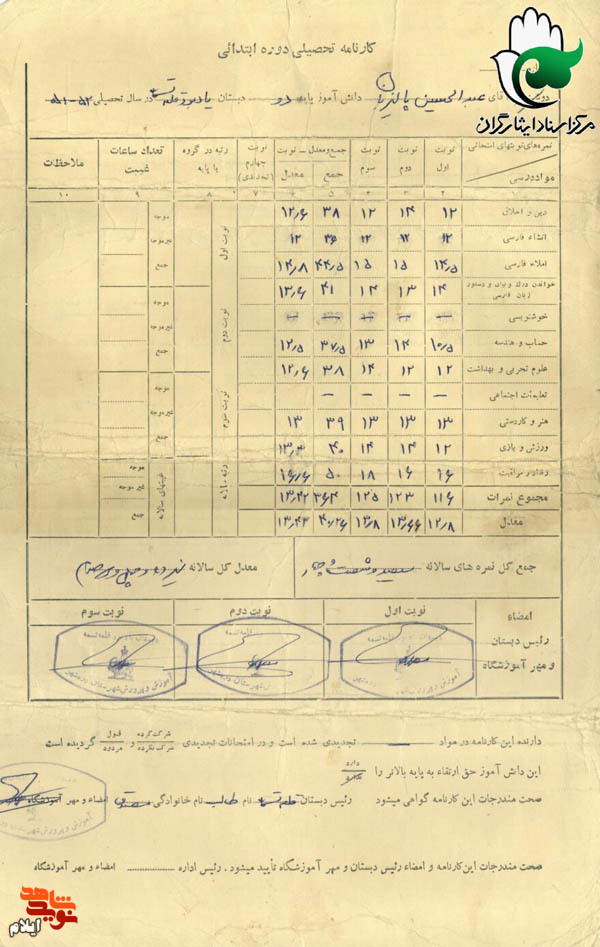 کارنامه تحصیلی دوره ابتدائی
مرکز اسناد ایثارگران
آقای عبدالحسین دانش آموز پایه دو دبستان در سال تحصیلی ۵۲-۵۱
نمره‌های نوبتهای امتحانی
مواد درسی
نوبت اول
نوبت دوم
نوبت سوم
جمع و معدل
جمع
معدل
نوبت چهارم (تجدیدی)
رتبه در گروه یا پایه
تعداد ساعات غیبت
ملاحظات
۲ ۳ ۴ ۵ ۶ ۷ ۸ ۹ ۱۰
دین و اخلاق ۱۲ ۱۴ ۱۲ ۳۸ ۱۲,۶
انشاء فارسی ۱۲ ۱۲ ۱۲ ۳۶ ۱۲
املاء فارسی ۱۴,۵ ۱۵ ۱۵ ۴۴,۵ ۱۴,۸
خواندن درک و بیان و دستور زبان فارسی ۱۴ ۱۳ ۱۴ ۴۱ ۱۳,۶
خوشنویسی – – – – –
حساب و هندسه ۱۰,۵ ۱۴ ۱۳ ۳۷,۵ ۱۲,۵
علوم تجربی و بهداشت ۱۲ ۱۲ ۱۴ ۳۸ ۱۲,۶
تعلیمات اجتماعی – – – –
هنر و کاردستی ۱۳ ۱۳ ۱۳ ۳۹ ۱۳
ورزش و بازی ۱۲ ۱۴ ۱۴ ۴۰ ۱۳,۳
رفتار و مراقبت ۱۶ ۱۶ ۱۸ ۵۰ ۱۶,۶
مجموع نمرات ۱۱۶ ۱۲۳ ۱۲۵ ۳۶۴ ۱۳,۴۲
معدل ۱۲,۸ ۱۳,۶۶ ۱۳,۸ ۴۰,۲۶ ۱۳,۴۳
نوبت اول
موجه
غیر موجه
جمع
نوبت دوم
موجه
غیر موجه
جمع
نوبت سوم
موجه
غیر موجه
جمع
رتبه سالانه
غیبتهای سالانه
موجه
غیر موجه
جمع
جمع کل نمره های سالانه سیصد و شصت و چهار
معدل کل سالانه
امضاء
رئیس دبستان
و مهر آموزشگاه
نوبت اول
نوبت دوم
نوبت سوم
آموزش و پرورش شهرستان دره شهر
دارنده این کارنامه در مواد تجدیدی شده است و در امتحانات تجدیدی شرکت کرده شرکت نکرده و قبول مردود گردیده است
این دانش آموز حق ارتقاء به پایه بالاتر را دارد
صحت مندرجات این کارنامه گواهی میشود رئیس دبستان نام طالب نام خانوادگی امضاء و مهر آموزشگاه
صحت مندرجات این کارنامه و امضاء رئیس دبستان و مهر آموزشگاه تأیید میشود . رئیس اداره امضاء و مهر آموزشگاه
نوید شاهد
ایلام